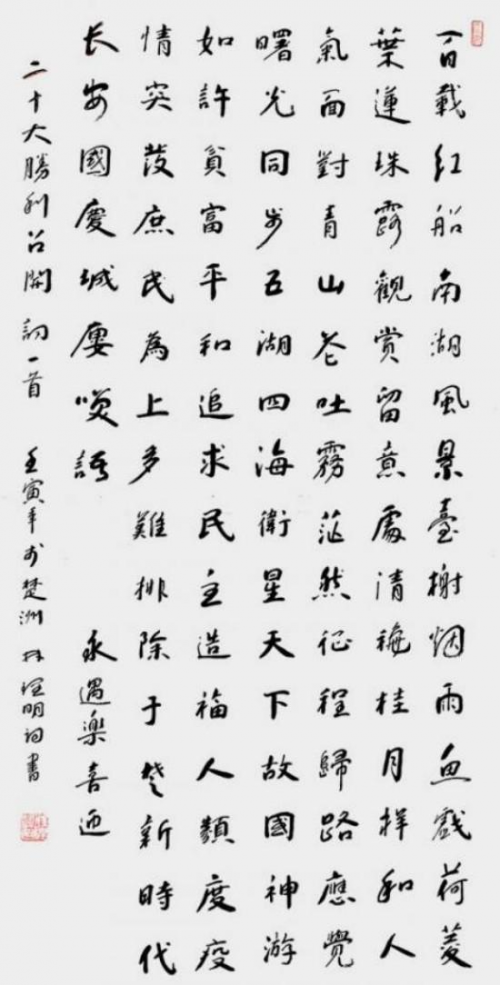 百載红船南湖風景臺榭烟雨鱼戲荷菱
葉蓮珠露觀賞留意處清桂月祥和人
氣面對青山吐霧茫然征程歸路應覺
曙光同步五湖四海衛星天下故國神游
如許貧富平和追求民主造福人類度疫
情突發庶民為上多難排除于新時代
长安國慶城廔語 永遇樂喜迎
二十大勝利召開詞一首 壬寅年於楚洲明詞書